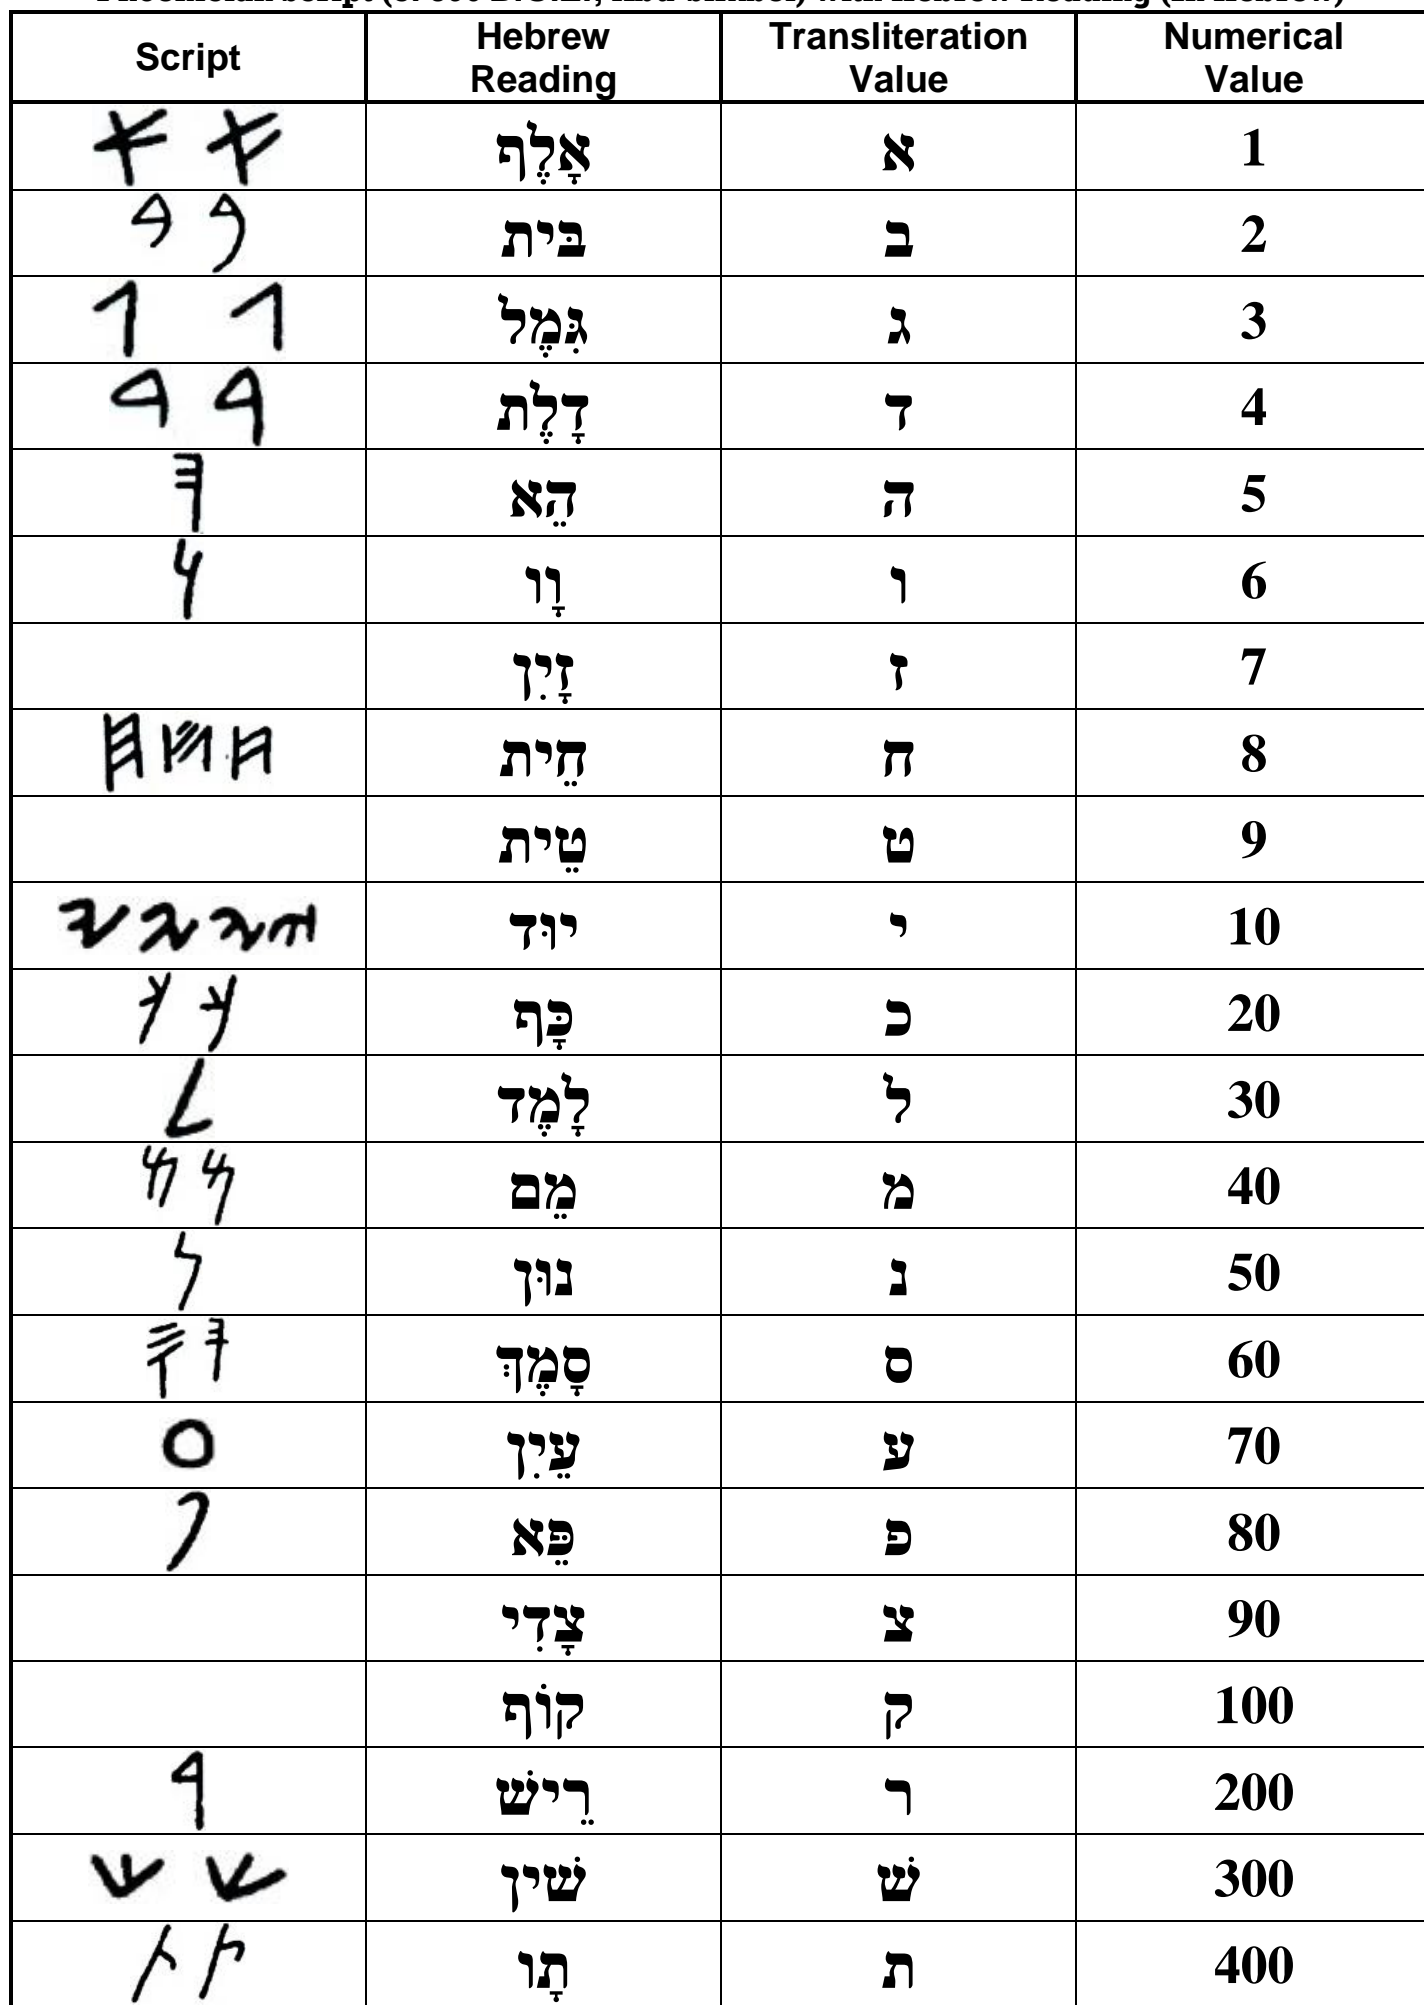 Script Hebrew Reading Transliteration Value Numerical Value
𐤀 𐤀 אָלֶף א 1
𐤁 𐤁 בּית ב 2
𐤂 𐤂 גִּמֶל ג 3
𐤃 𐤃 דָלֶת ד 4
𐤄 הֵא ה 5
𐤅 וָו ו 6
זָיִן ז 7
𐤇 𐤇 𐤇 חֵית ח 8
טֵית ט 9
𐤉 𐤉 𐤉 𐤉 יוּד י 10
𐤊 𐤊 כָּף כ 20
𐤋 לָמֶד ל 30
𐤌 𐤌 מֵם מ 40
𐤍 נוּן נ 50
𐤎 𐤎 סָמֶךְ ס 60
𐤏 עֵיִן ע 70
𐤐 פֵּא פ 80
צָדִי צ 90
קוֹף ק 100
𐤓 רֵישׁ ר 200
𐤔 𐤔 שׁין שׁ 300
𐤕 𐤕 תָו ת 400